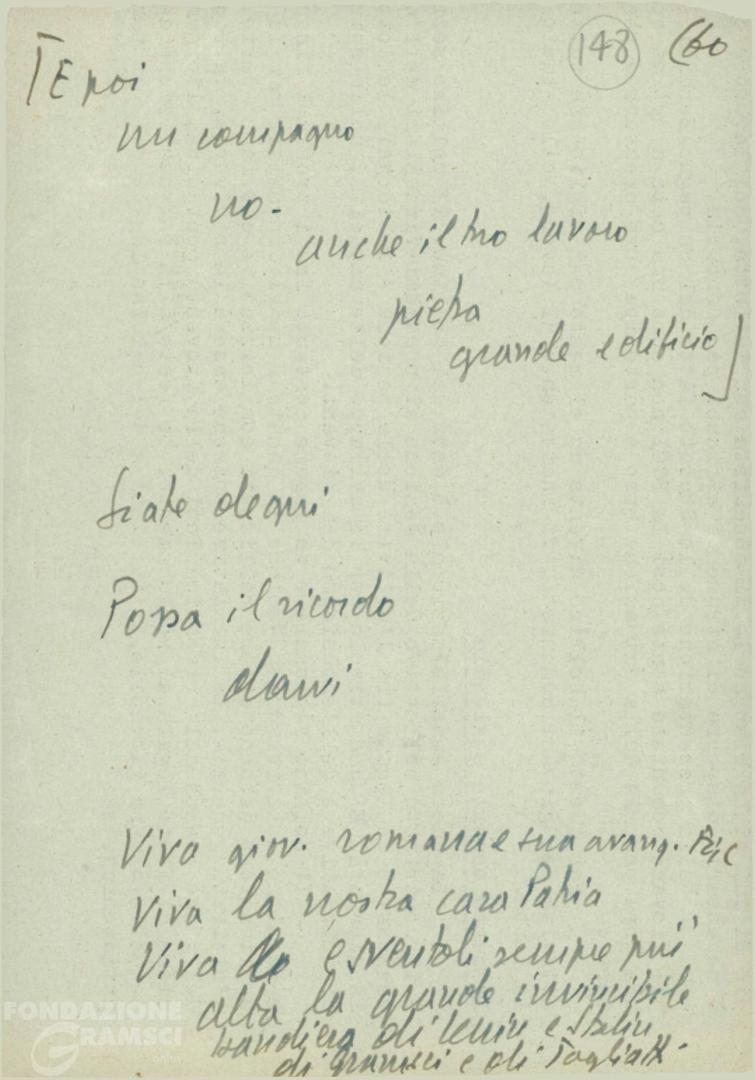 148 (60
[E poi
un compagno
no -
anche il tuo lavoro
pietra
grande edificio]
Siate degni
Possa il ricordo
darvi
Viva giov. romana e sua avang. FGC
Viva la nostra cara Patria
Viva e sventoli sempre più
alta la grande invincibile
bandiera di Lenin e Stalin
di Gramsci e di Togliatti.
FONDAZIONE
GRAMSCI